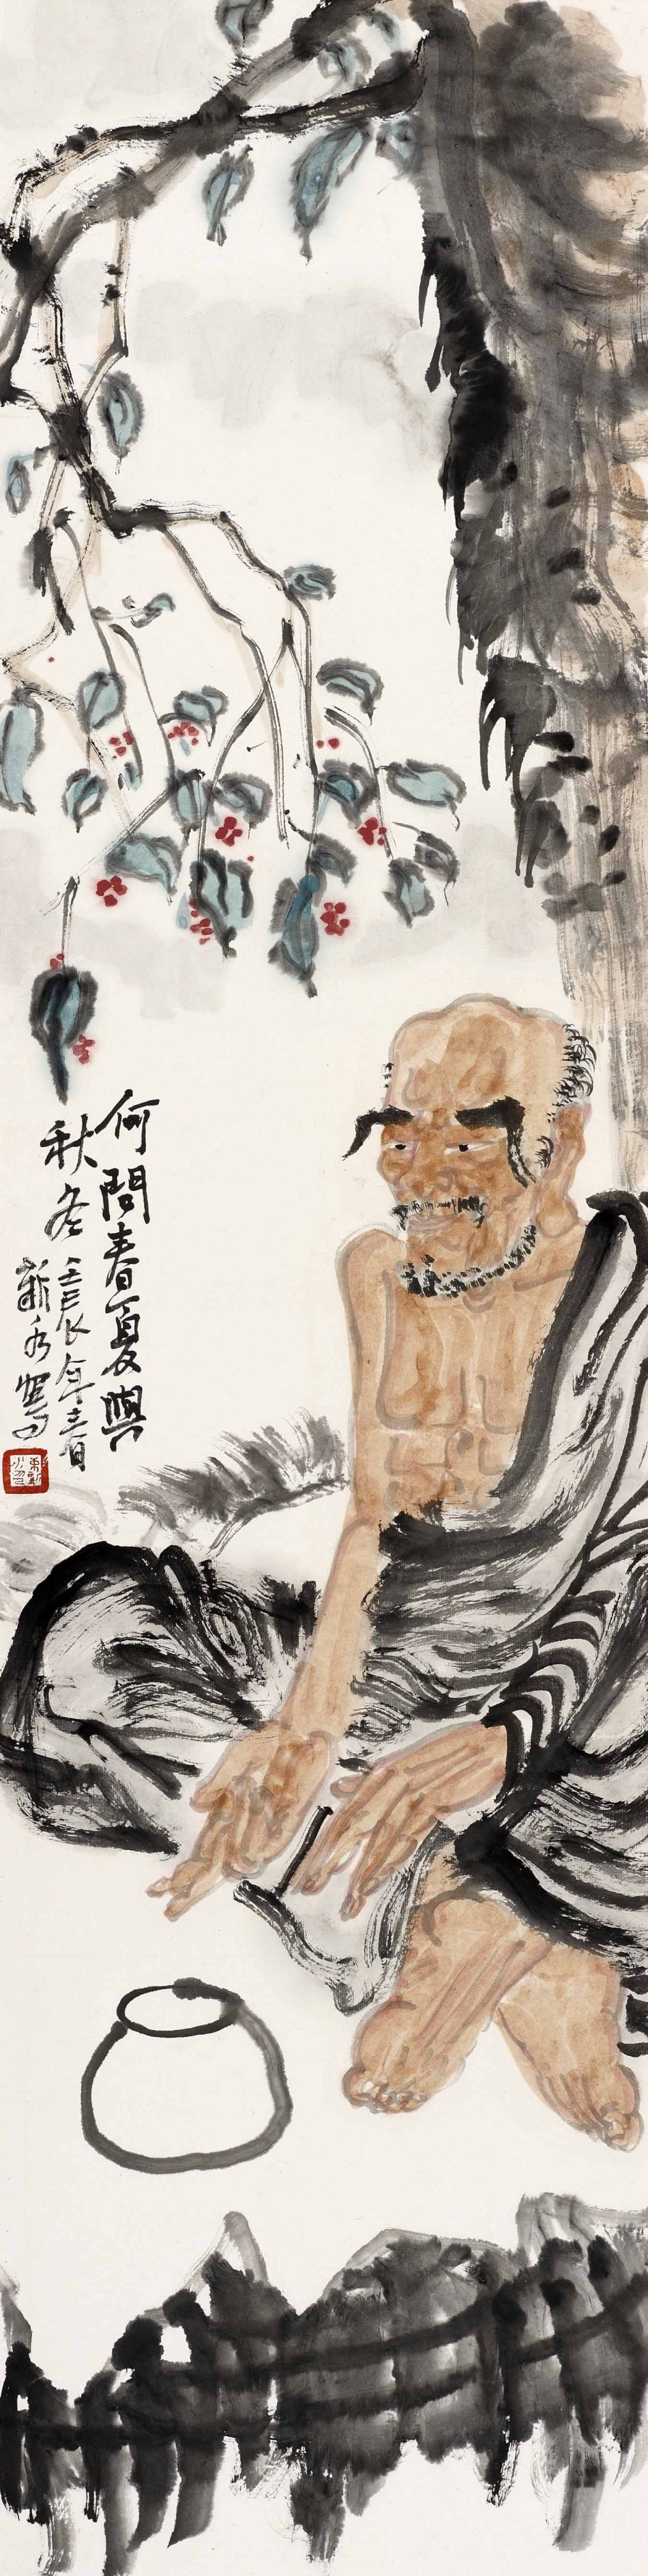 何問春夏與
秋冬 壬辰年春
靳秀寫